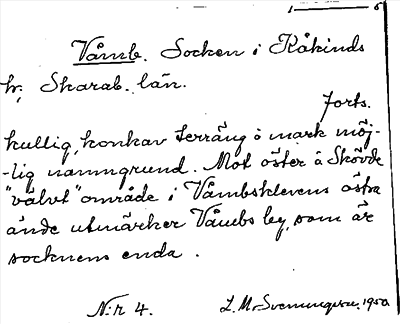 1 — 6
Våmb. Socken i Kåkinds
hr, Skarab. län.
forts.
kullig, konkav terräng o mark möj-
-lig namngrund. Mot öster å Skövde
"välvt" område i Våmbsklevens östra
ände utmärker Våmbs by, som är
socknens enda.
N:r 4. L. M. Svenungsson. 1950